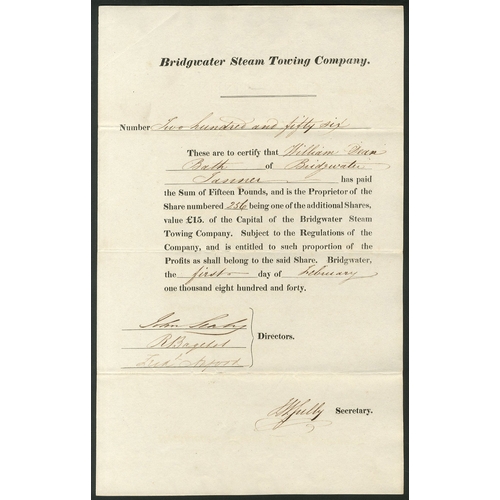 Bridgwater Steam Towing Company.
Number Two hundred and fifty six
These are to certify that William Evan
Bath of Bridgwater
Tanner has paid
the Sum of Fifteen Pounds, and is the Proprietor of the
Share numbered 256 being one of the additional Shares,
value £15. of the Capital of the Bridgwater Steam
Towing Company. Subject to the Regulations of the
Company, and is entitled to such proportion of the
Profits as shall belong to the said Share. Bridgwater,
the first day of February
one thousand eight hundred and forty.
John
R Bagehot
Directors.
Secretary.